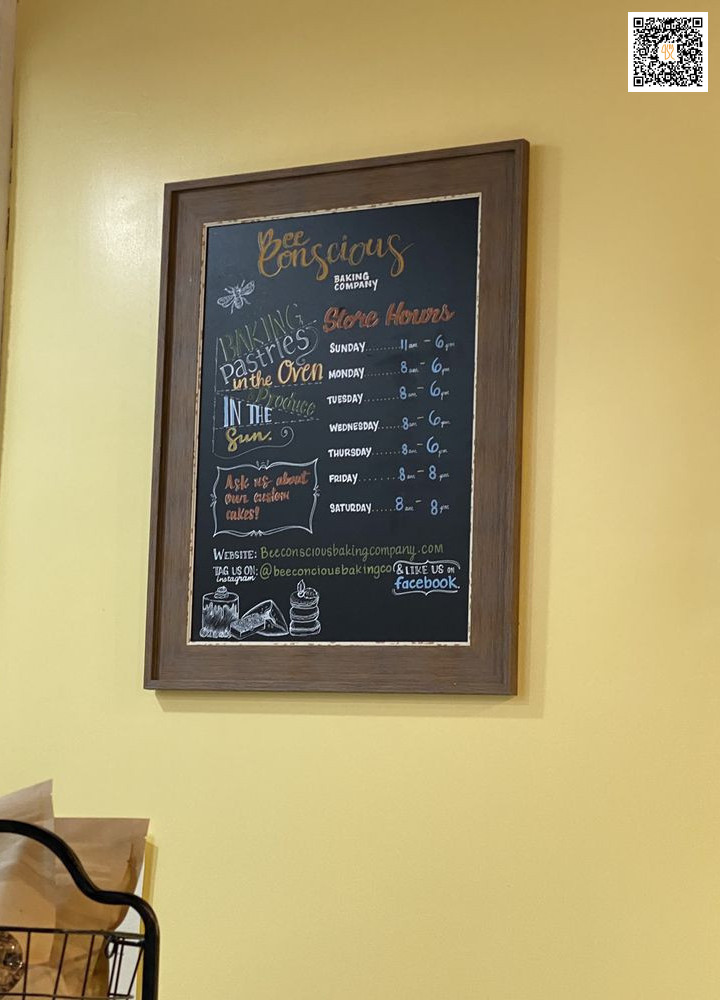 Bee
Conscious
BAKING
COMPANY
BAKING
Pastries
in the Oven
& Produce
IN THE
Sun.
Ask us about
our custom
cakes!
Store Hours
SUNDAY........11am - 6pm
MONDAY.......8am - 6pm
TUESDAY.......8am - 6pm
WEDNESDAY....8am - 6pm
THURSDAY......8am - 6pm
FRIDAY........8am - 8pm
SATURDAY.....8am - 8pm
WEBSITE: Beeconsciousbakingcompany.com
TAG US ON: @beeconciousbakingco
instagram
& LIKE US ON
facebook.